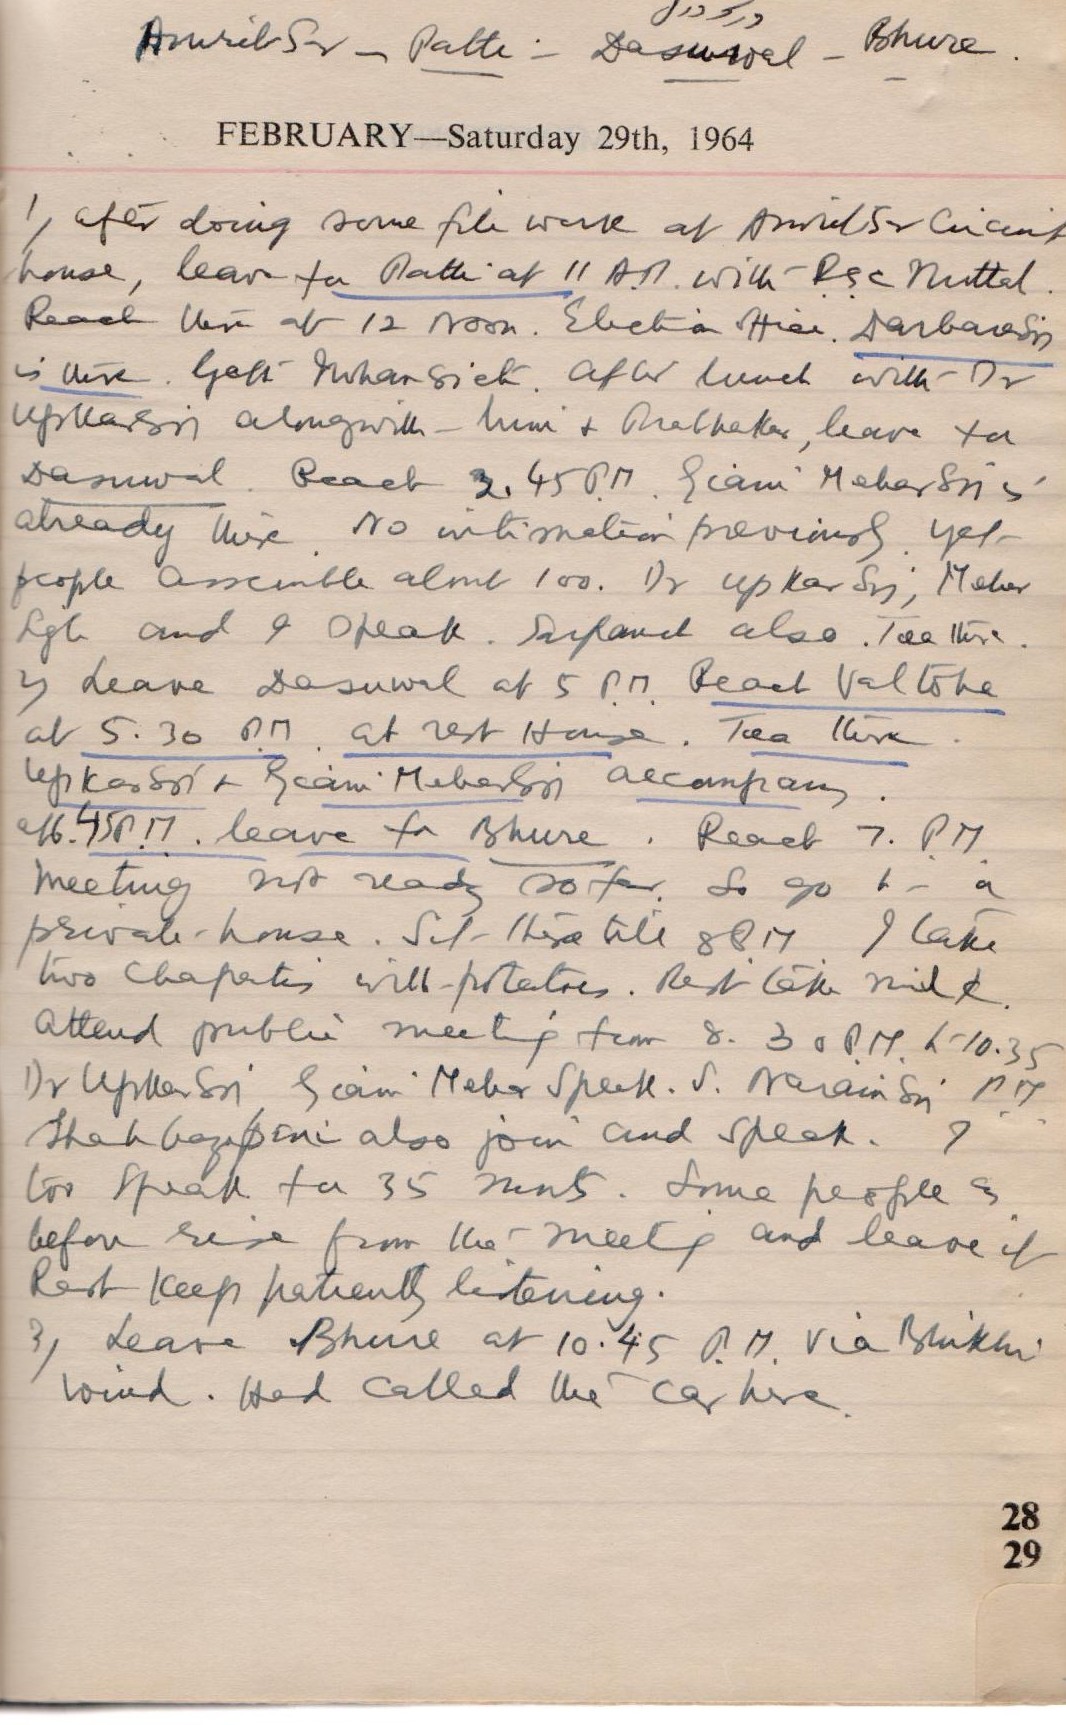 AmritSr - Patti - Dasuwal - Bhure.
FEBRUARY—Saturday 29th, 1964
1, after doing some file work at AmritSr Circuit
house, leave for Patti at 11 A.M. with
Reach there at 12 Noon. Election Office. DarbaraSin
is there. After lunch with Dr
UpkarSin alongwith him & Prabhakar, leave for
Dasuwal. Reach 3.45 P.M. Giani MeharSin is
already there. No intimation previously. Yet
people assemble about 100. Dr UpkarSin, Mehar
Sgh and I speak. Sarpanch also. Tea there.
2, Leave Dasuwal at 5 P.M. Reach Valtoha
at 5.30 P.M. at rest House. Tea there.
UpkarSin & Giani MeharSin accompany.
at 6.45 P.M. leave for Bhure. Reach 7. P.M.
Meeting not ready so far. So go to a
private house. Sit there till 8 P.M. I take
two chapatis with potatoes. Rest take
attend public meeting from 8.30 P.M. to 10.35
P.M.
Dr UpkarSin Giani Mehar Speak. S. NarainSin
Shahbazpuri also join and speak. I
too speak for 35 mnts. Some people as
before rise from the meeting and leave it
Rest keep patiently listening.
3, Leave Bhure at 10.45 P.M. via Bhikhi
wind. Had called the car here.
28
29